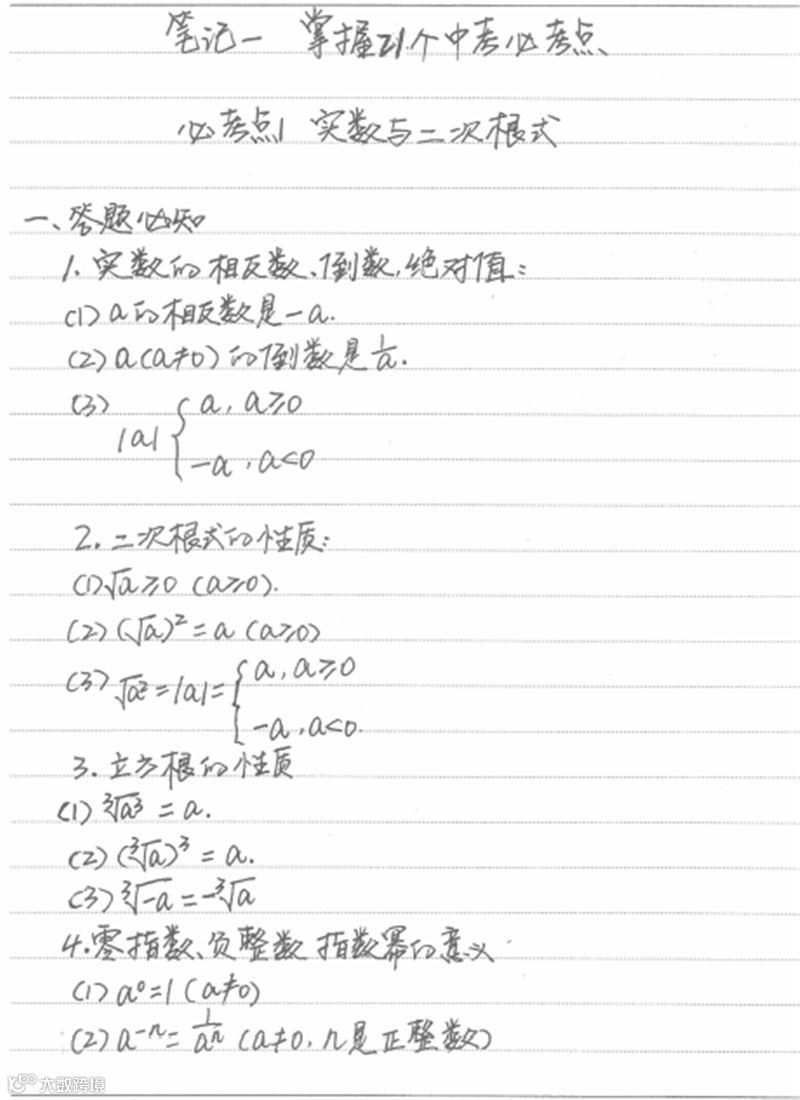 笔记一 掌握21个中考必考点
必考点1 实数与二次根式
一、答题必知
1. 实数的相反数、倒数、绝对值:
(1) a的相反数是-a.
(2) a(a≠0)的倒数是1/a.
(3) |a| { a, a≥0
-a, a<0
2. 二次根式的性质:
(1) √a≥0 (a≥0).
(2) (√a)² = a (a≥0)
(3) √a² = |a| = { a, a≥0
-a, a<0.
3. 立方根的性质
(1) ³√a³ = a.
(2) (³√a)³ = a.
(3) ³√-a = -³√a
4. 零指数、负整数指数幂的意义
(1) a⁰=1 (a≠0)
(2) a⁻ⁿ = 1/aⁿ (a≠0, n是正整数)
大数跨境